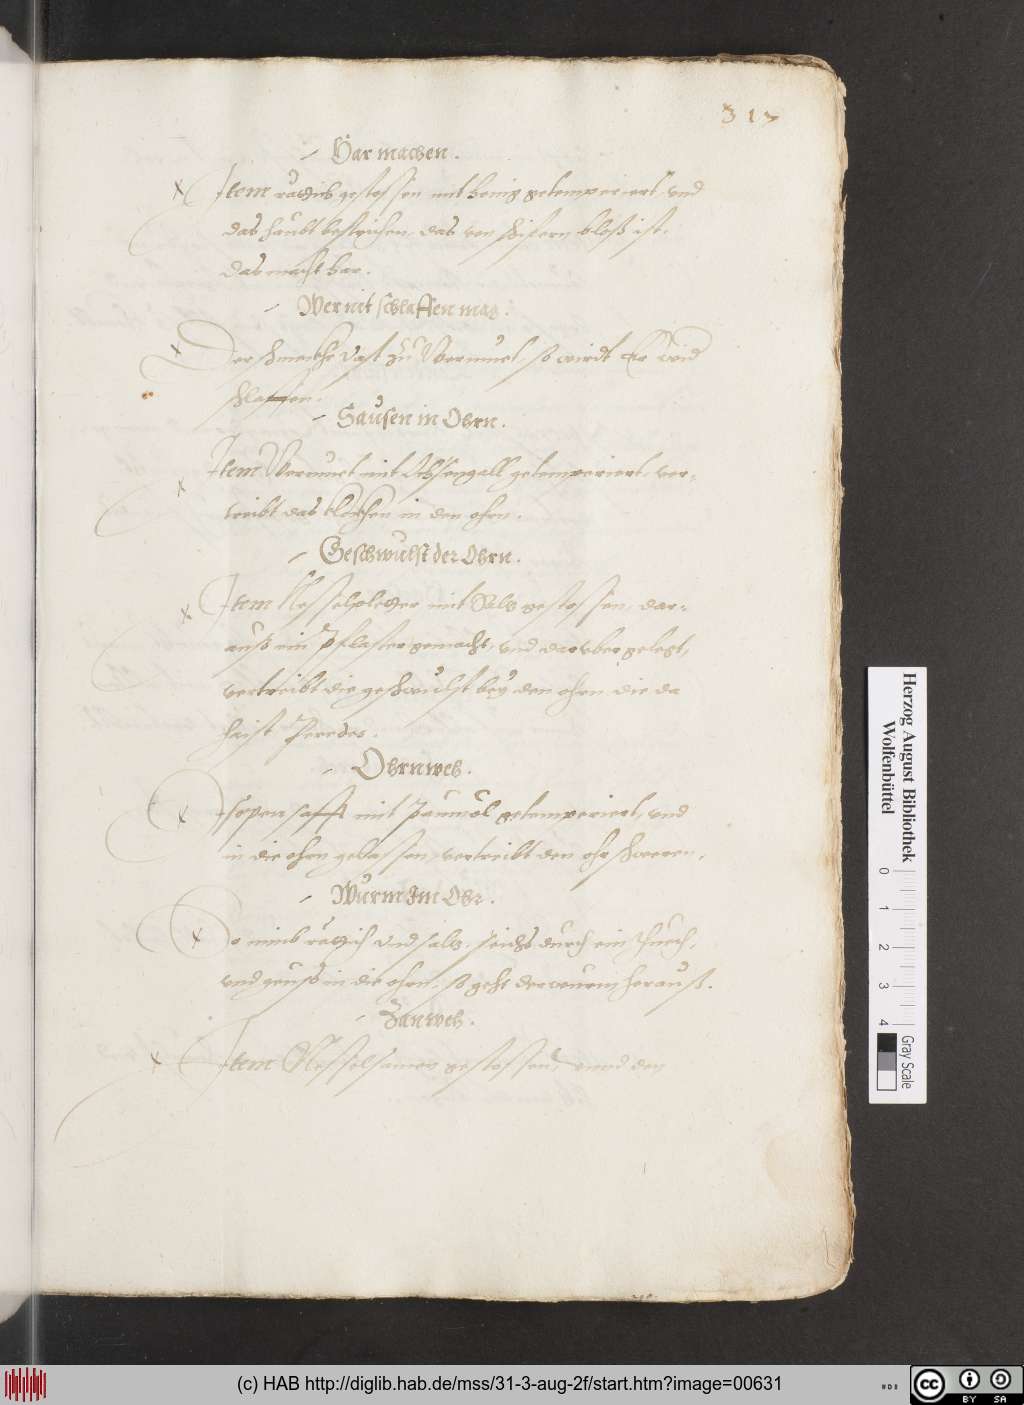 317
Har machen.
Item rättich gestossen mit honig getemperiert, vnd
das haubt bestrichen, das von schifern bloß ist.
das macht har.
Wer nit schlaffen mag.
Der schmeckhe vast zu Wermuet, so wirdt Er wid
schlaffen.
Sausen in Ohrn.
Item Wermuet mit Ochsengall getemperiert, ver-
treibt das klockhen in den ohrn.
Geschwulst der Ohrn.
Item Nesselpletter mit Saltz gestossen, dar-
auß ein Pflaster gemacht, vnd darvber gelegt,
vertreibt die geschwulst bey den ohrn die da
haist
Ohrnweh.
Isopen safft mit paumöl getemperiert, vnd
in die ohrn gelassen, vertreibt den ohr schweren.
Wurm Im Ohr.
So nimb rättich vnd saltz, seichs durch ein thuech,
vnd geuß in die ohrn, so geht der wurm herauß.
Zanweh.
Item Nesselsamen gestossen, vnnd den
Herzog August Bibliothek
Wolfenbüttel
0 1 2 3 4
Gray Scale
(c) HAB http://diglib.hab.de/mss/31-3-aug-2f/start.htm?image=00631
cc BY SA